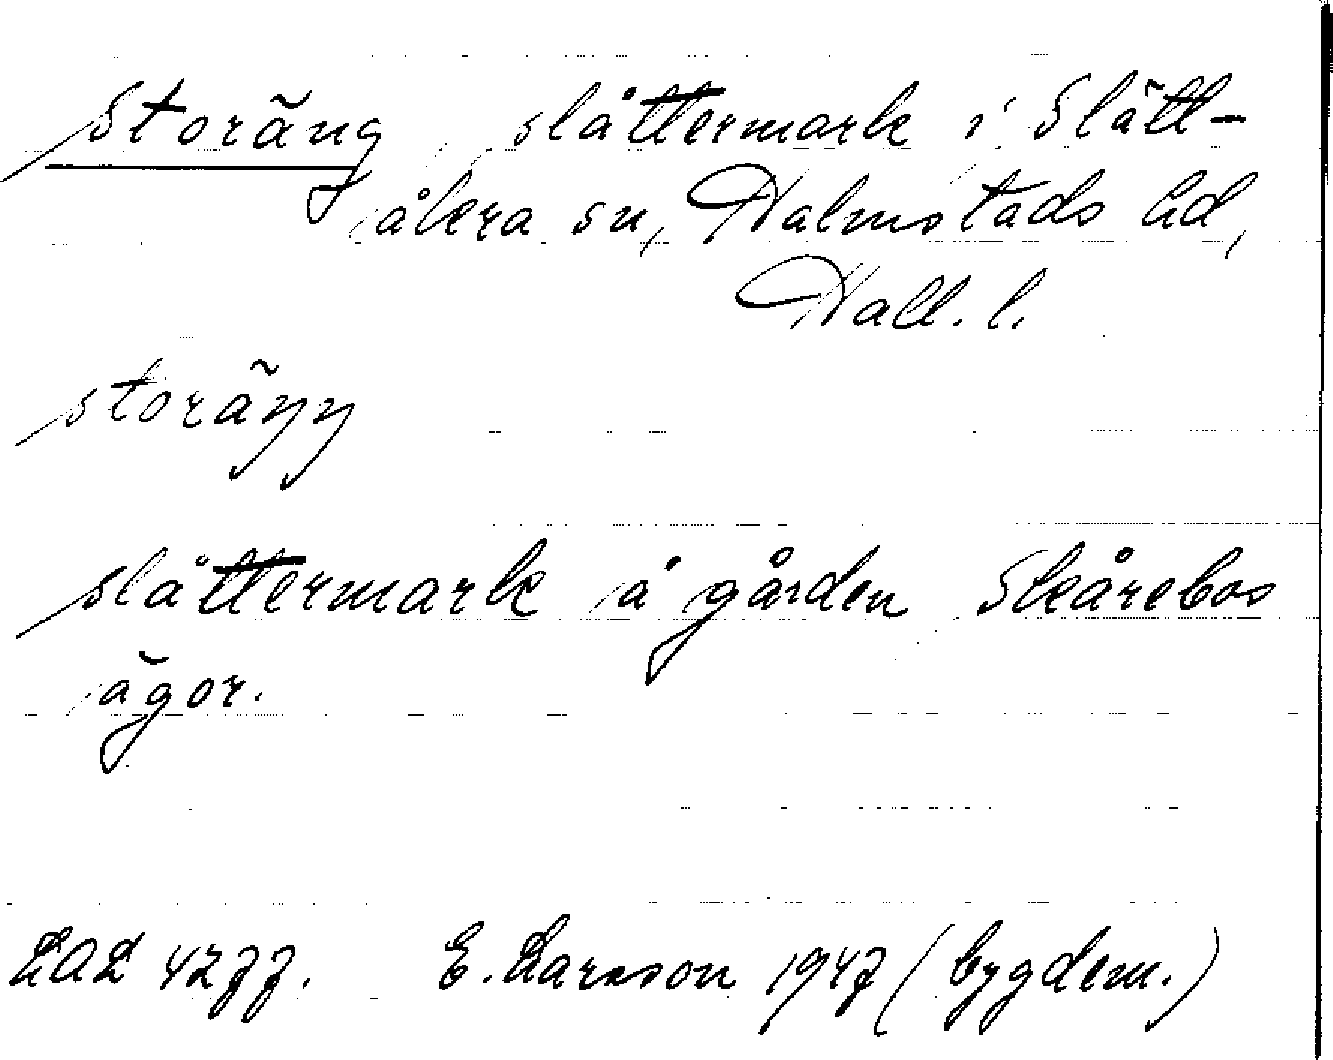 Storäng, slåttermark i Slätt-
åkra sn, Halmstads hd,
Hall. l.
storäŋŋ
slåttermark å gården Skårebos
ägor.
LAL 4277. E. Larsson 1947 (bygdem.)